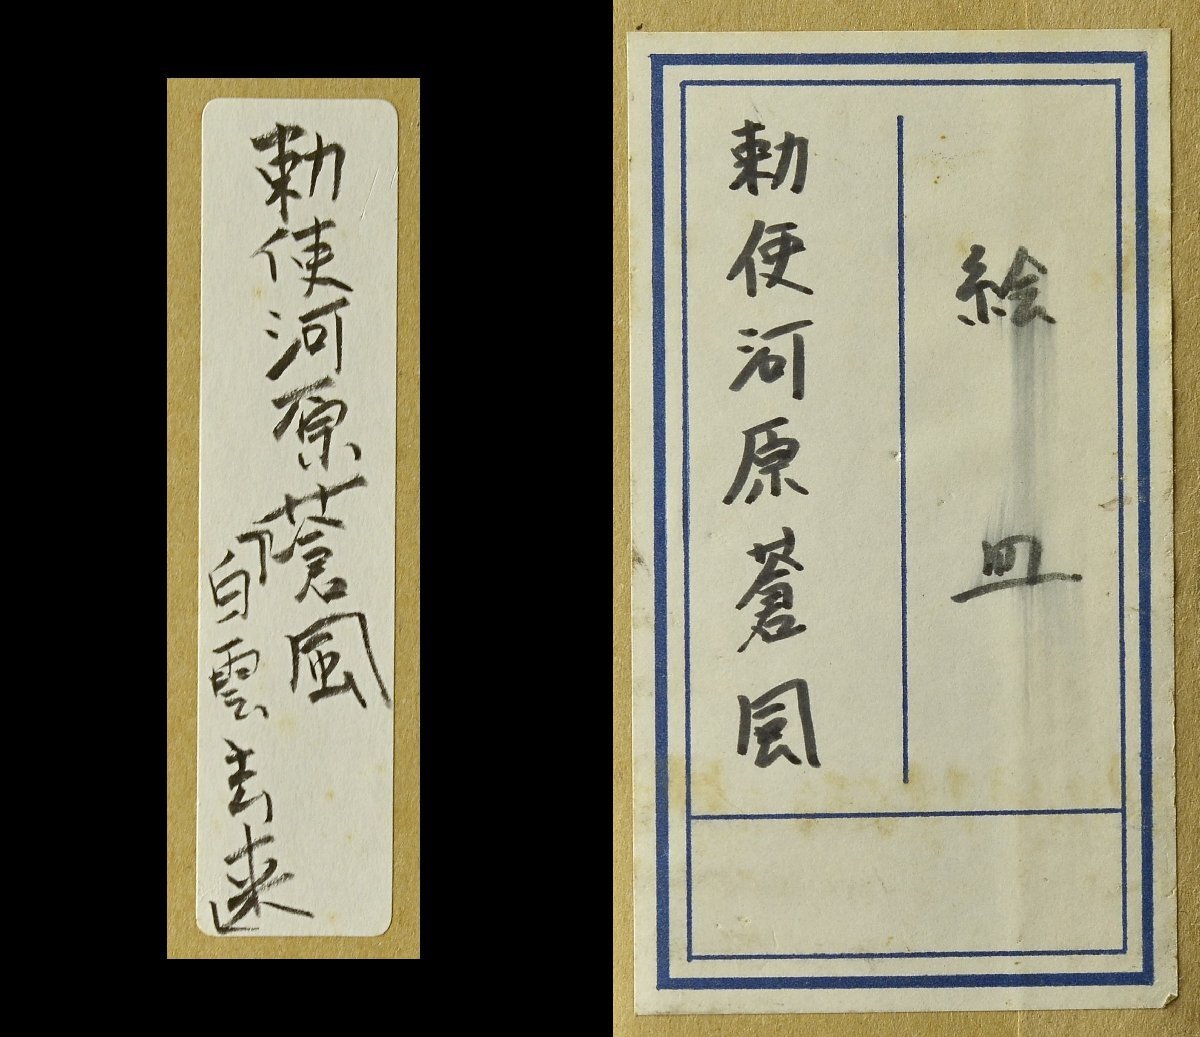 勅使河原蒼風
「白雲去来」
絵皿
勅使河原蒼風